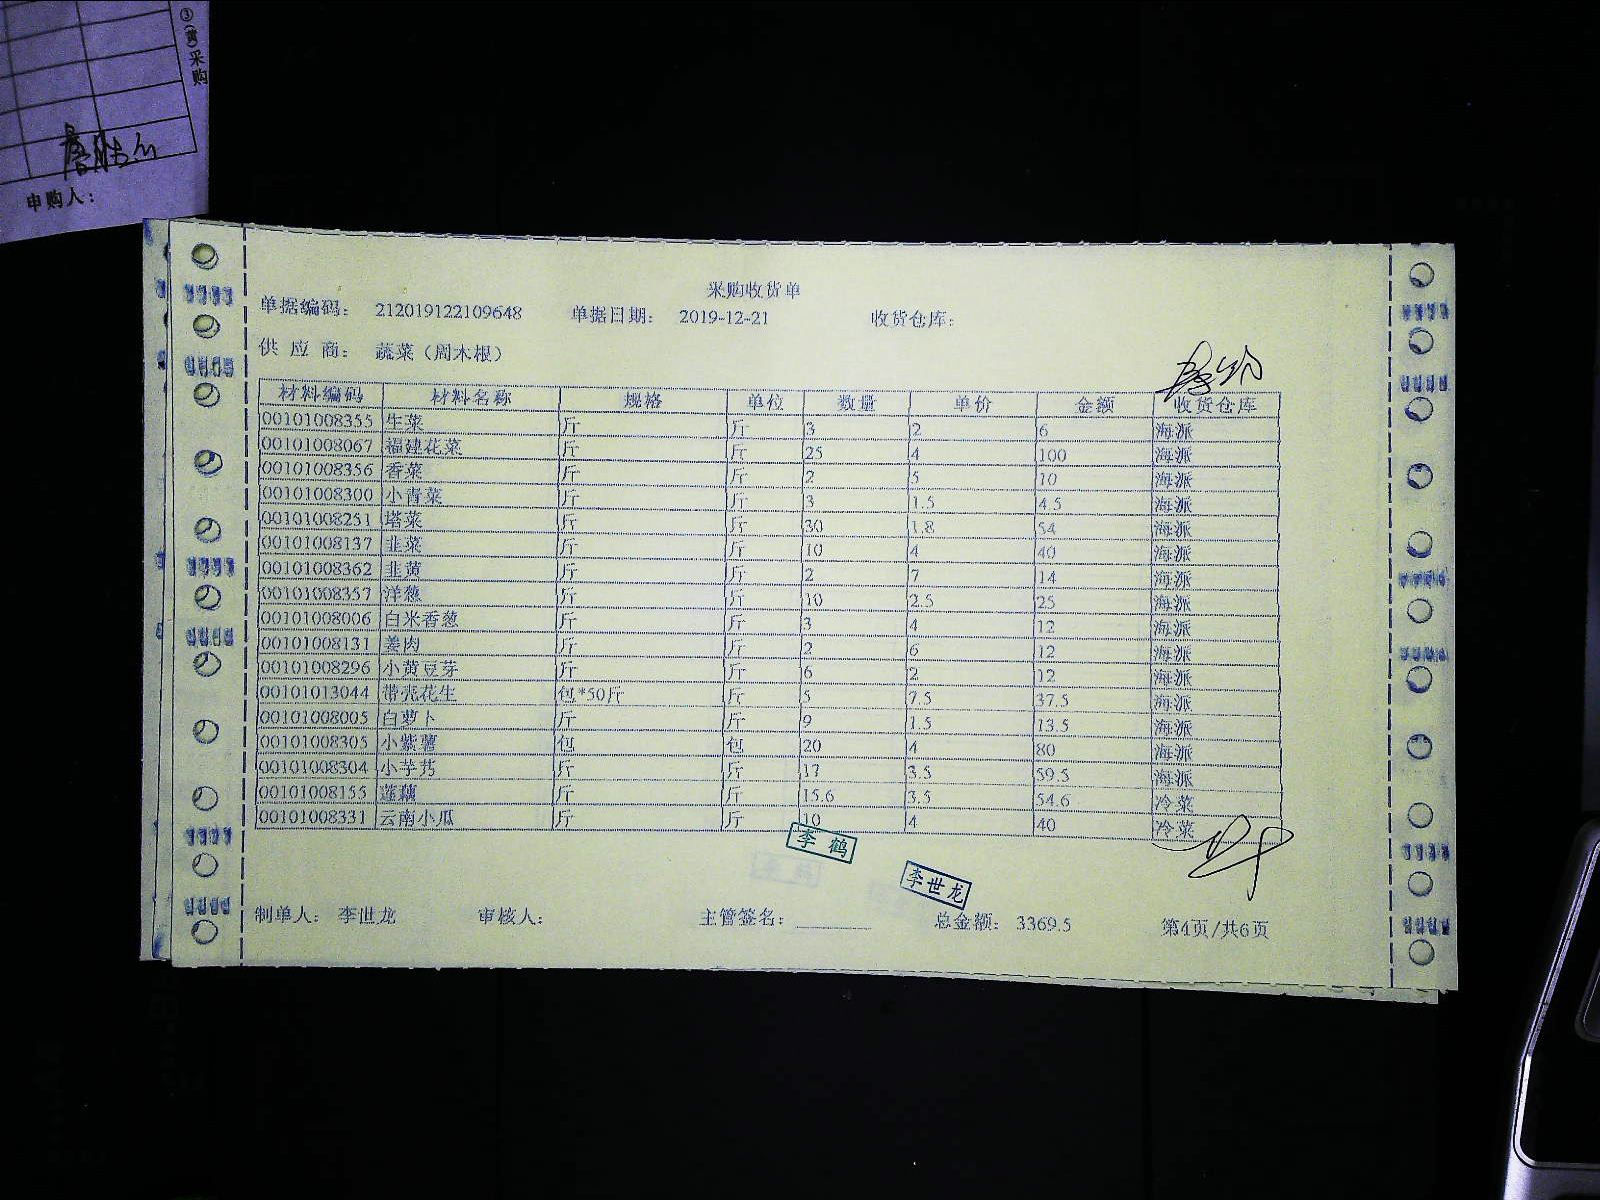 ③(黄)采购
申购人：
采购收货单
单据编码： 212019122109648 单据日期： 2019-12-21 收货仓库：
供 应 商： 蔬菜（周木根）
材料编码 材料名称 规格 单位 数量 单价 金额 收货仓库
00101008355 生菜 斤 斤 3 2 6 海派
00101008067 福建花菜 斤 斤 25 4 100 海派
00101008356 香菜 斤 斤 2 5 10 海派
00101008300 小青菜 斤 斤 3 1.5 4.5 海派
00101008251 塔菜 斤 斤 30 1.8 54 海派
00101008137 韭菜 斤 斤 10 4 40 海派
00101008362 韭黄 斤 斤 2 7 14 海派
00101008357 洋葱 斤 斤 10 2.5 25 海派
00101008006 白米香葱 斤 斤 3 4 12 海派
00101008131 姜肉 斤 斤 2 6 12 海派
00101008296 小黄豆芽 斤 斤 6 2 12 海派
00101013044 带壳花生 包*50斤 斤 5 7.5 37.5 海派
00101008005 白萝卜 斤 斤 9 1.5 13.5 海派
00101008305 小紫薯 包 包 20 4 80 海派
00101008304 小芋艿 斤 斤 17 3.5 59.5 海派
00101008155 莲藕 斤 斤 15.6 3.5 54.6 冷菜
00101008331 云南小瓜 斤 斤 10 4 40 冷菜
李 鹤
李世龙
制单人： 李世龙 审核人： 主管签名： 总金额： 3369.5 第4页/共6页